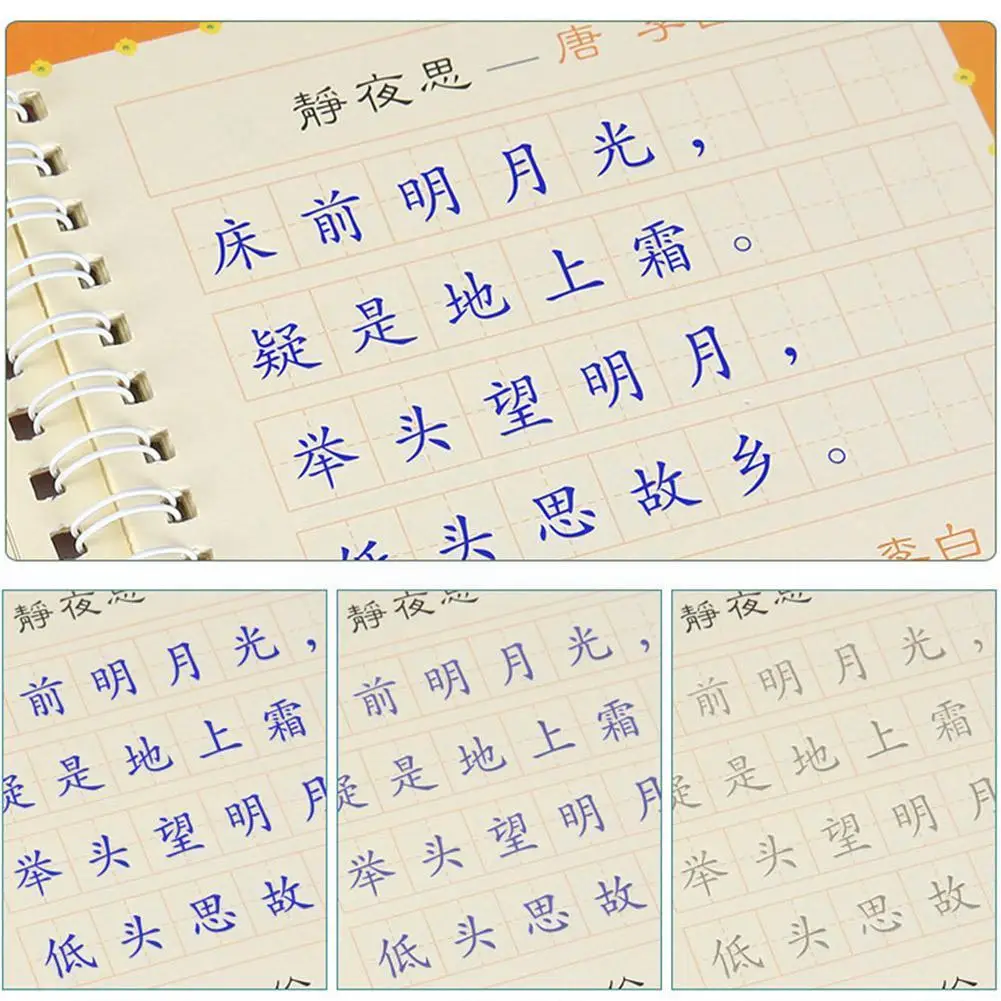 靜夜思—唐 李白
床前明月光，
疑是地上霜。
举头望明月，
低头思故乡。
李白
靜夜思
前明月光，
疑是地上霜
举头望明月
低头思故
靜夜思
前明月光，
疑是地上霜
举头望明月
低头思故
靜夜思
前明月光，
疑是地上霜
举头望明月
低头思故